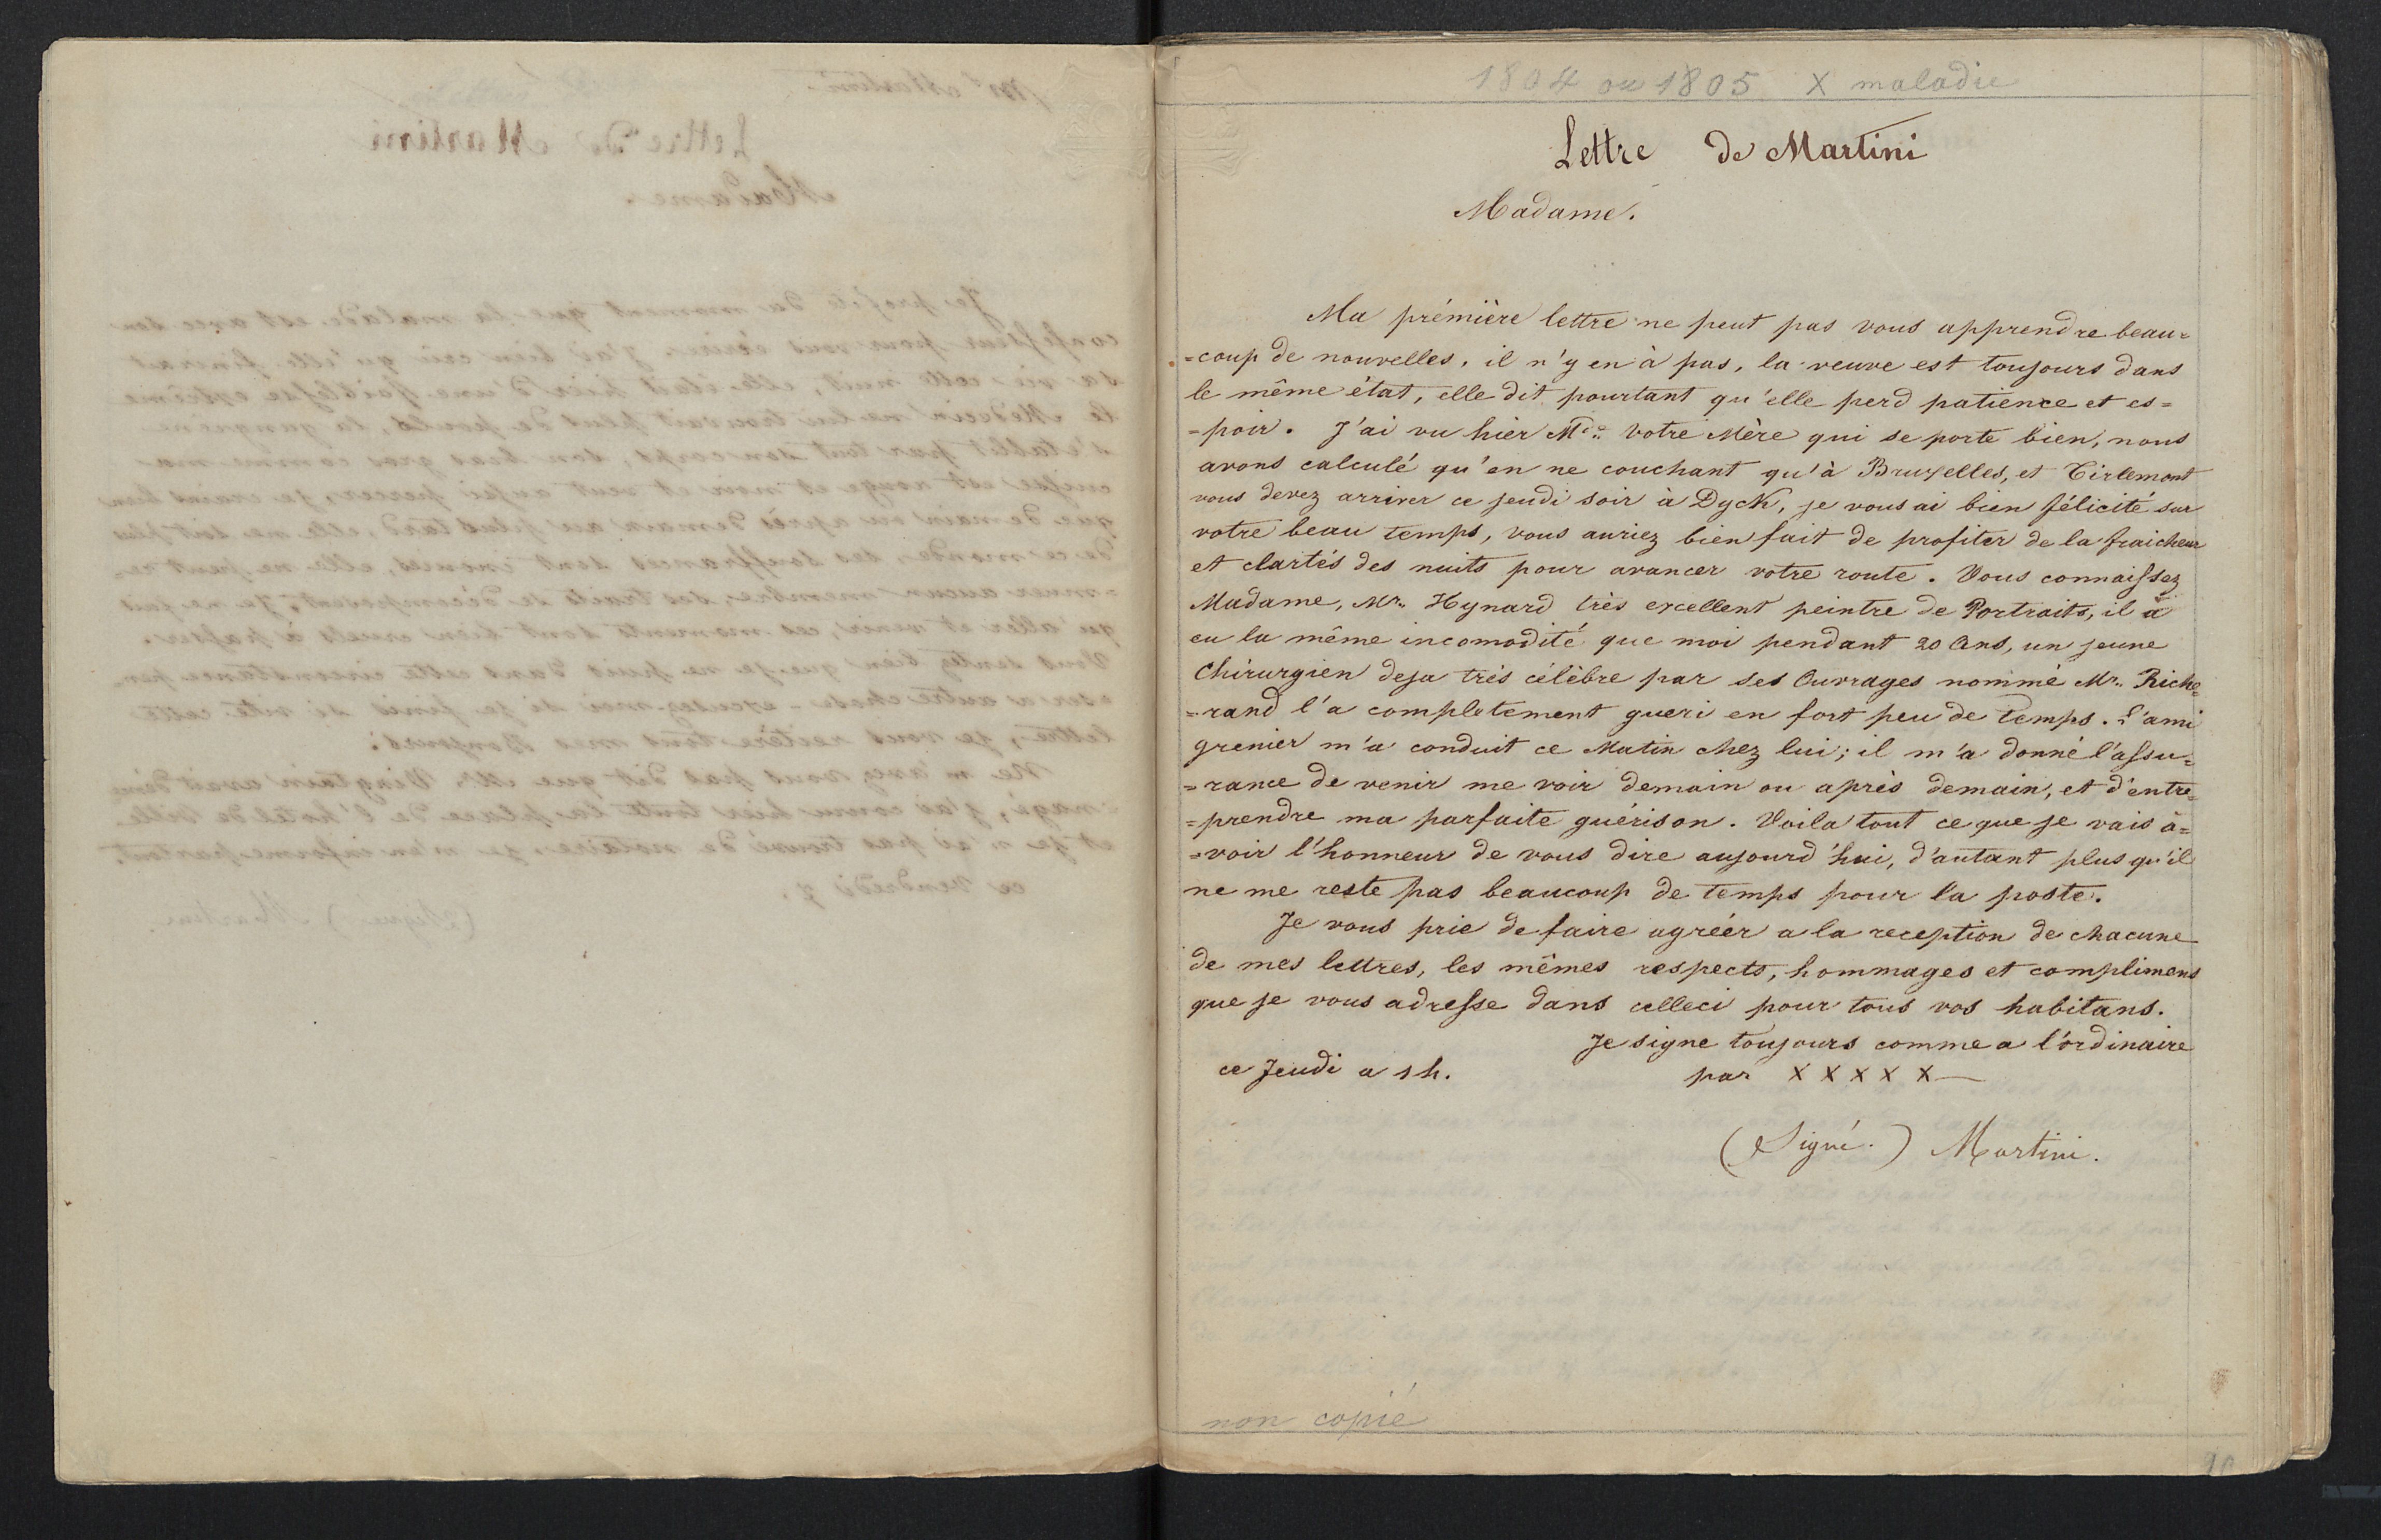 1804 ou 1805 X maladie
Lettre de Martini
Madame.
Ma prémière lettre ne peut pas vous apprendre beau=
=coup de nouvelles, il n'y en à pas, la veuve est toujours dans
le même état, elle dit pourtant qu'elle perd patience et es=
=poir. J'ai vu hier Mde votre Mère qui se porte bien, nous
avons calculé qu'en ne couchant qu'à Bruxelles, et Tirlemont
vous devez arriver ce jeudi soir à Dyck, je vous ai bien félicité sur
votre beau temps, vous auriez bien fait de profiter de la fraicheur
et clartés des nuits pour avancer votre route. Vous connaissez
Madame, Mr. Hynard très excellent peintre de Portraits, il à
eu la même incomodité que moi pendant 20 Ans, un jeune
Chirurgien deja très célèbre par ses Ouvrages nommé Mr. Riche=
=rand l'a completement gueri en fort peu de temps. L'ami
grenier m'a conduit ce Matin chez lui; il m'a donné l'assu=
=rance de venir me voir demain ou après demain, et d'entre=
=prendre ma parfaite guérison. Voila tout ce que je vais a=
=voir l'honneur de vous dire aujourd'hui, d'autant plus qu'il
ne me reste pas beaucoup de temps pour la poste.
Je vous prie de faire agréér a la reception de chacune
de mes lettres, les mêmes respects, hommages et complimens
que je vous adresse dans celleci pour tous vos habitans.
Je signe toujours comme a l'ordinaire
ce Jeudi a 1 h. par X X X X X
(Signé.) Martini.
non copié